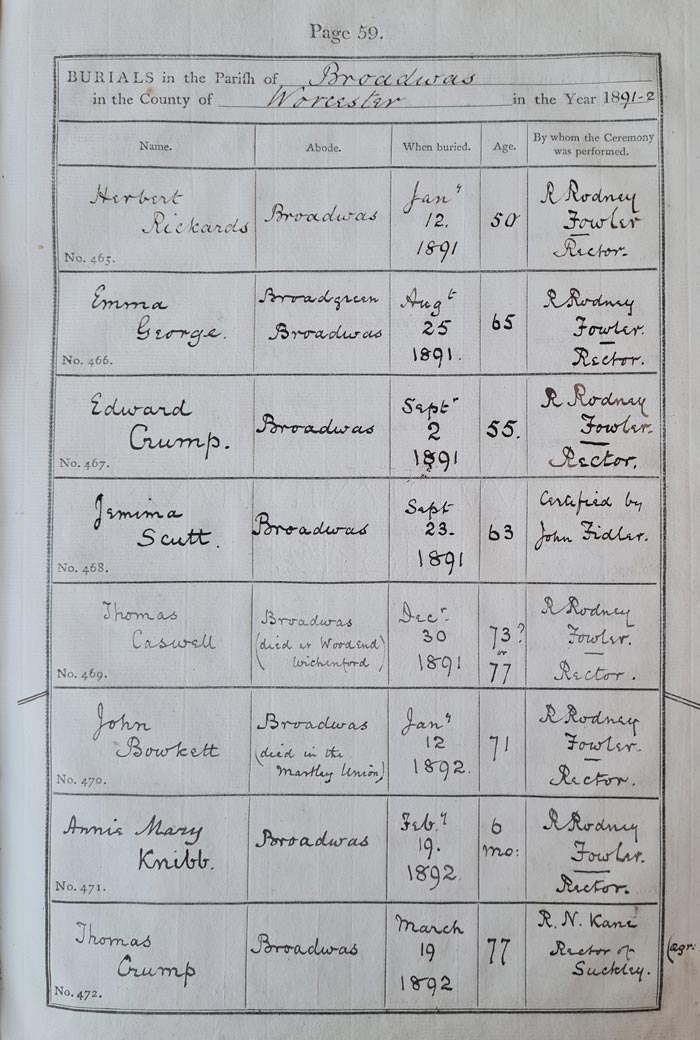 Page 59.
BURIALS in the Parish of Broadwas
in the County of Worcester in the Year 1891-2
Name. Abode. When buried. Age. By whom the Ceremony was performed.
Herbert
Rickards
No. 465.
Broadwas
Jany
12.
1891
50
R Rodney
Fowler
Rector.
Emma
George.
No. 466.
Broadgreen
Broadwas
Augt
25
1891.
65
R Rodney
Fowler.
Rector.
Edward
Crump.
No. 467.
Broadwas
Septr
2
1891
55.
R Rodney
Fowler.
Rector.
Jemima
Scutt.
No. 468.
Broadwas
Sept
23.
1891
63
Certified by
John Fidler.
Thomas
Caswell
No. 469.
Broadwas
(died at Woodend
Wichenford)
Decr.
30
1891
73?
or
77
R Rodney
Fowler.
Rector.
John
Bowkett
No. 470.
Broadwas
(died in the
Martley Union)
Jany
12
1892.
71
R Rodney
Fowler.
Rector.
Annie Mary
Knibb.
No. 471.
Broadwas
Feb.y
19.
1892.
6
mo:
R Rodney
Fowler.
Rector.
Thomas
Crump
No. 472.
Broadwas
March
19
1892
77
R. N. Kane
Rector of
Suckley.